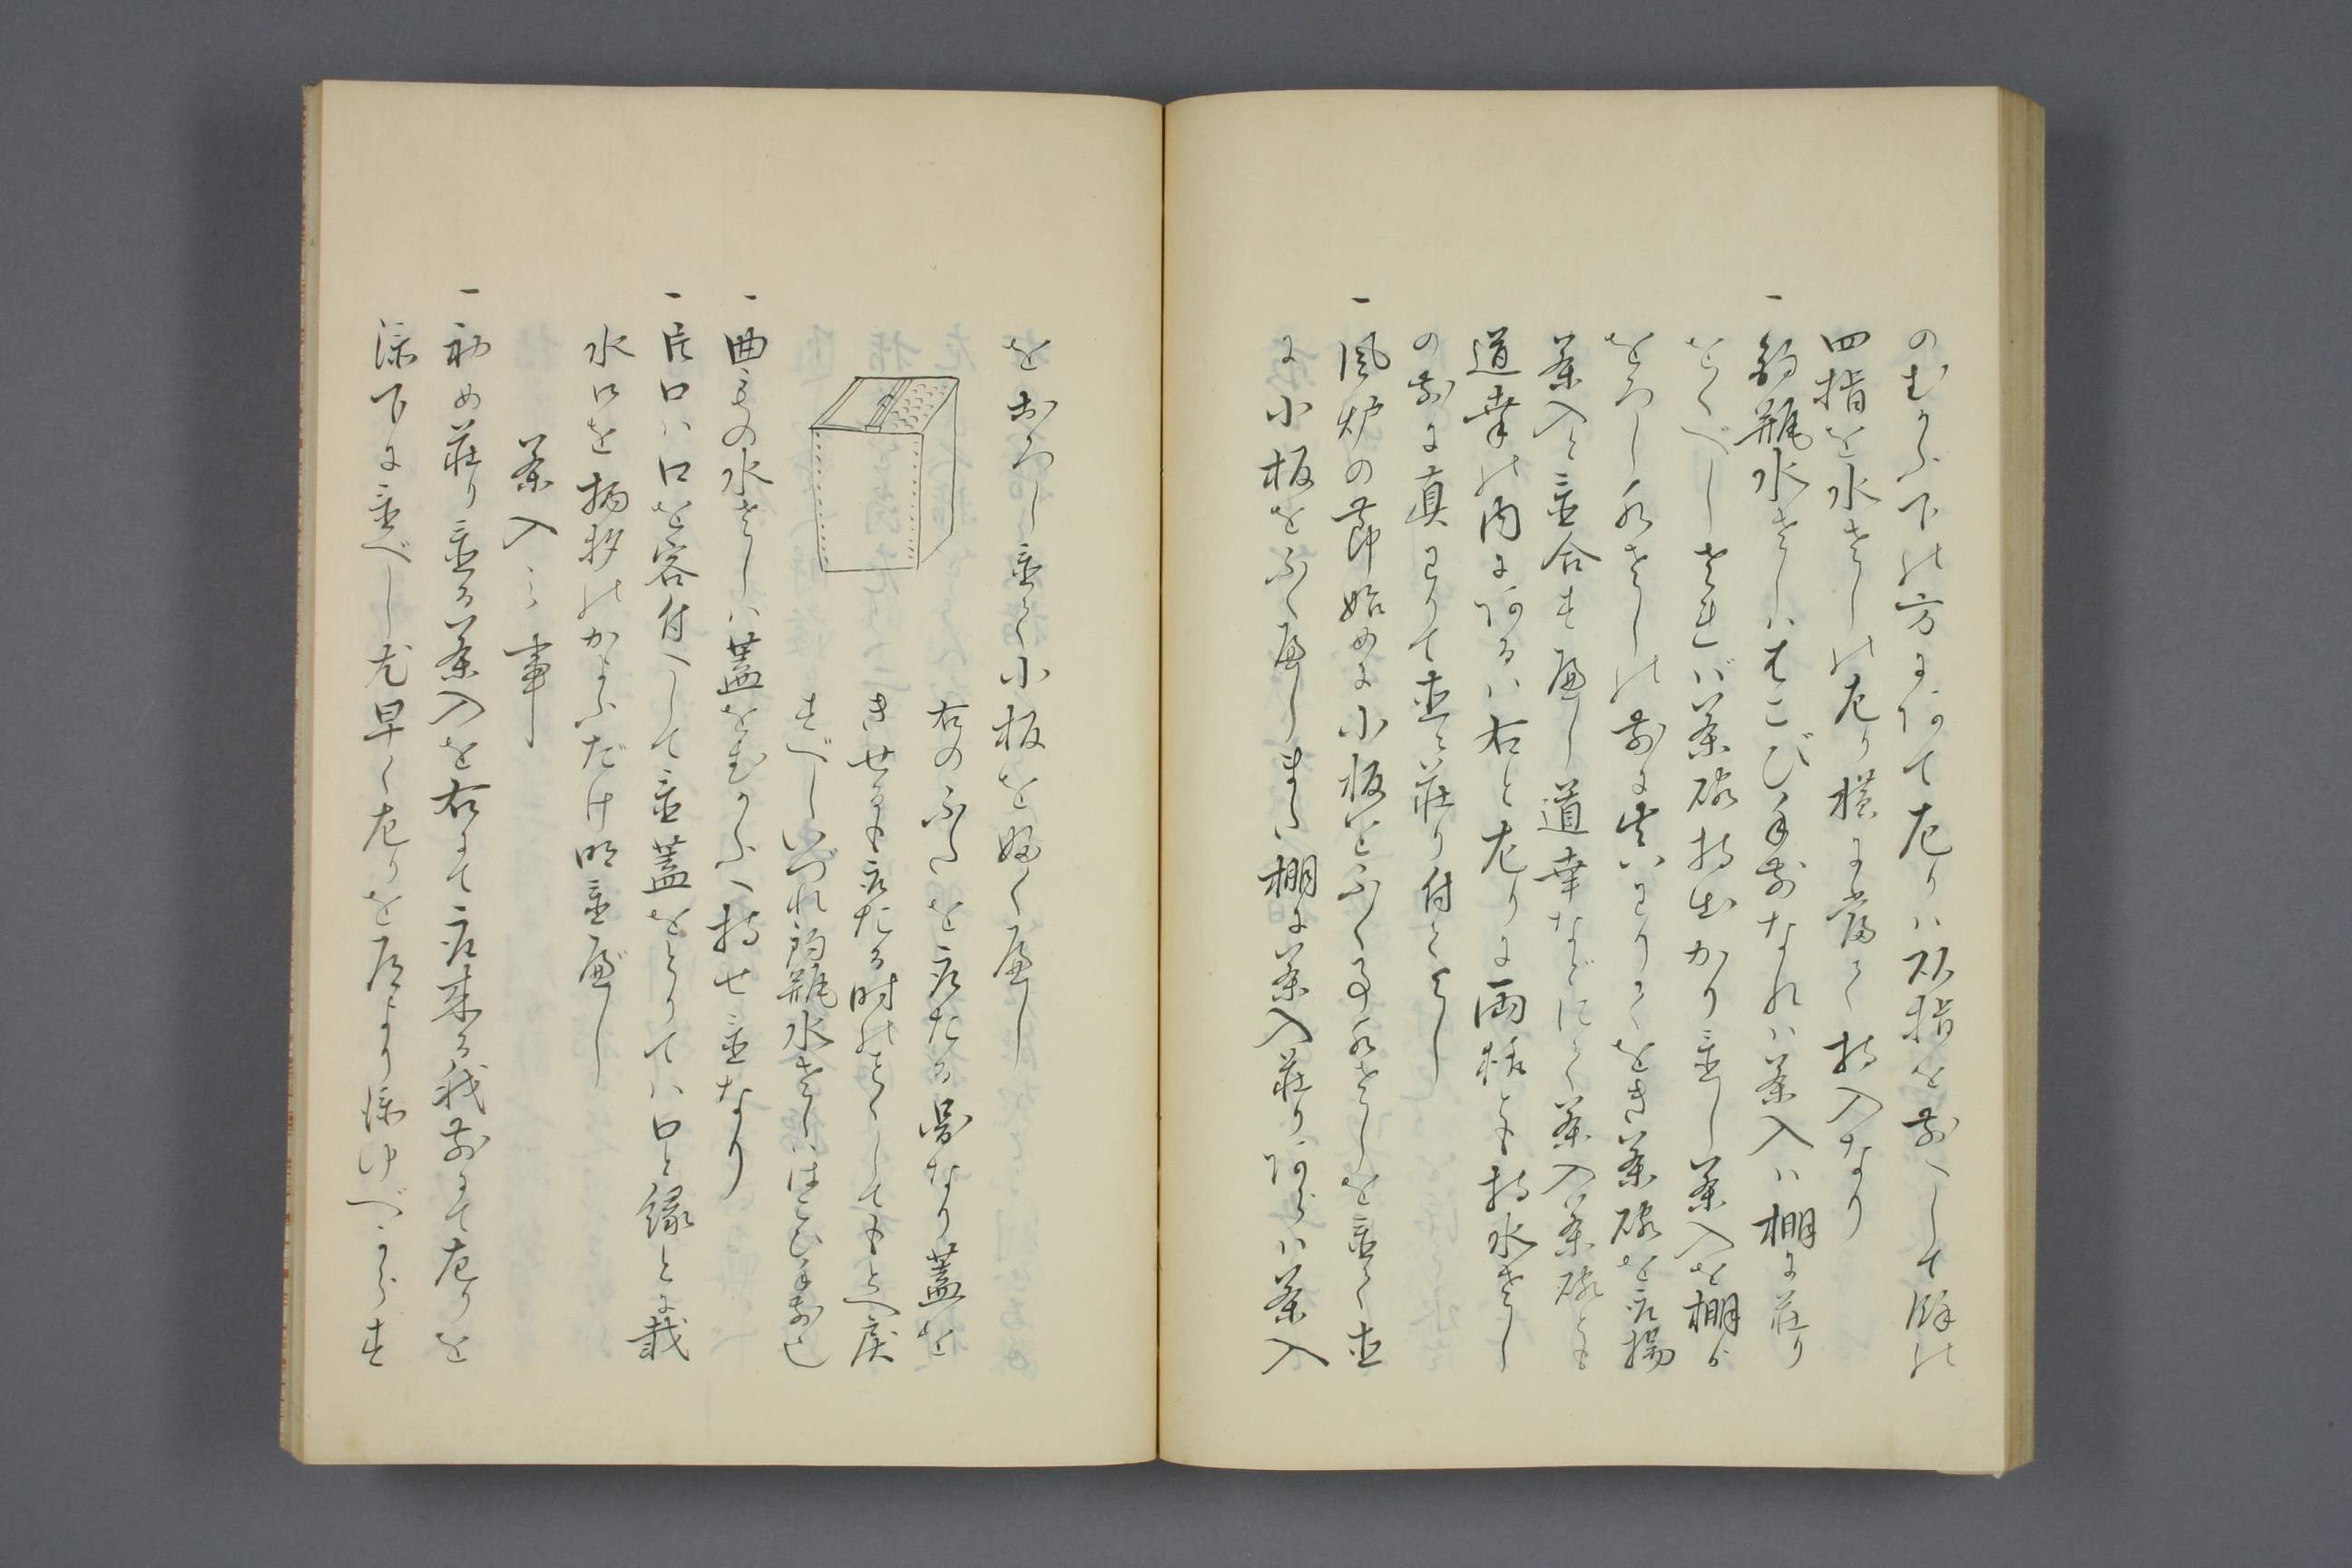 のむかふ下の方にあて左りハ大指を前へして余の
四指を水さしの左り横に当て持入なり
一釣瓶水さしハはこび手前なれハ茶入ハ棚に荘り
をくべしされバ茶碗持出かり置し茶入を棚より
をろし水さしの前に真ハをりてをき茶碗を取揚
茶入と置合す可し道幸などにて茶入茶碗とも
道幸の内にあるハ右と左りに両
の前に真をりて直に荘り付をくべし
一風炉の節始めに小板をふく事水さしを置て直
に小板をふく可しまた棚に茶入荘りあらハ茶入
をおろし置て小板を拭く可し
右のふたを取たる図なり蓋を
きせるも取たる時の如くしてもとへ戻
すべしいづれ釣瓶水さしハはこび手前也
一曲もの水さしハ蓋をむかふへ持せ置なり
一片口ハ口を客付へして置蓋をとりてハ口と縁とに載
水口を柄杓のかよふだけ明置べし
茶入之事
一初め荘り置る茶入を右にて取来る我前にて左りを
添下に置べし尤早く左りを席より添ゆべからす